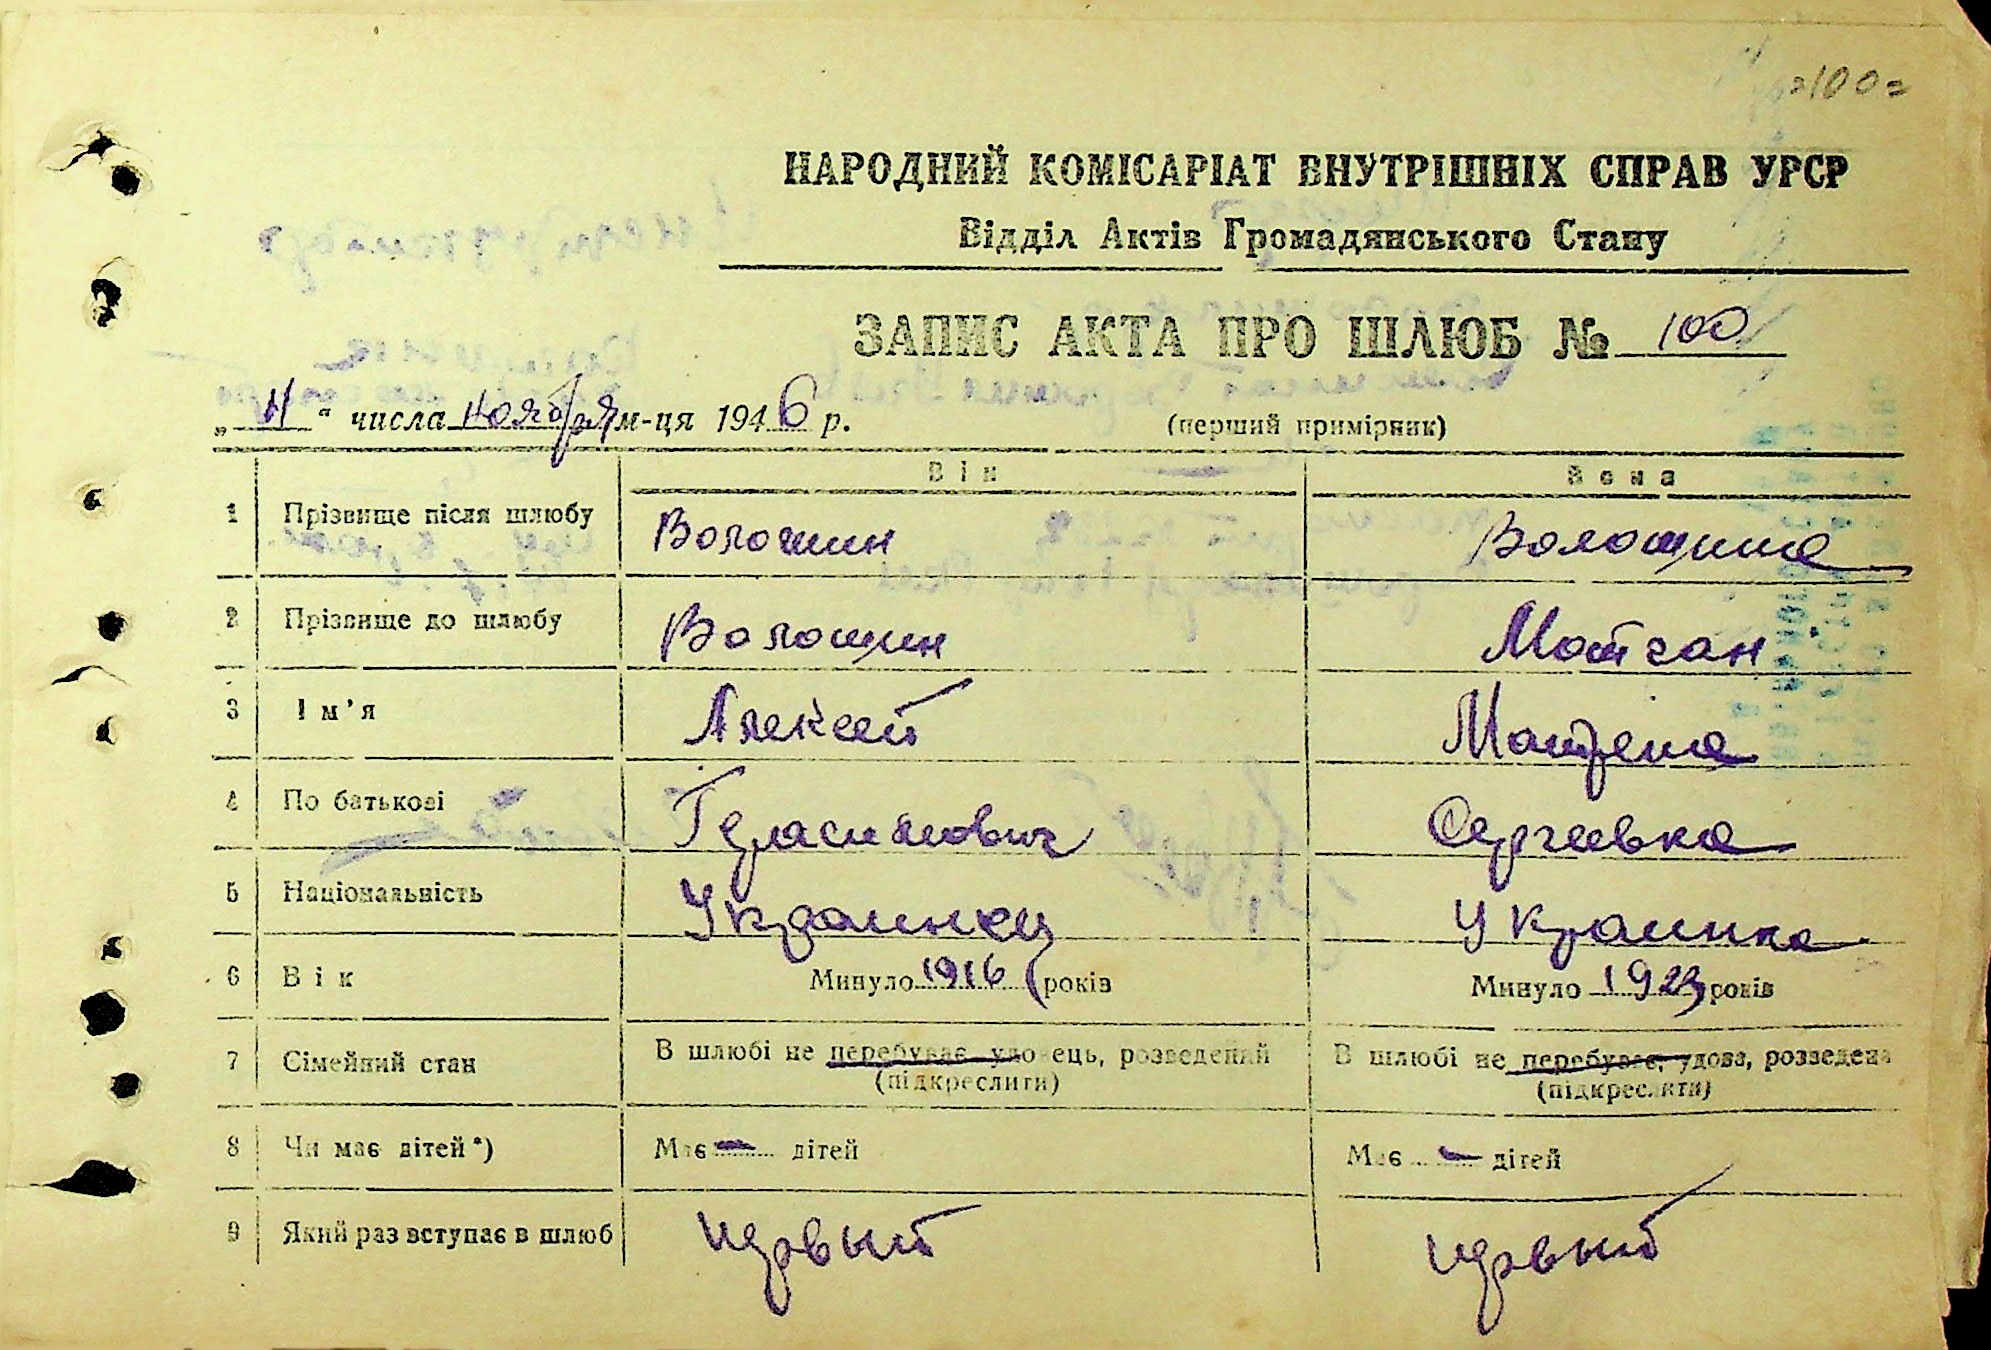 =100=
НАРОДНИЙ КОМІСАРІАТ ВНУТРІШНІХ СПРАВ УРСР
Відділ Актів Громадянського Стану
ЗАПИС АКТА ПРО ШЛЮБ № 100
„ 11 “ числа ноября м-ця 1946 р. (перший примірник)
Він Вона
1 Прізвище після шлюбу Волошин Волошина
2 Прізвище до шлюбу Волошин Мотган
3 Ім'я Алексей Матрена
4 По батькові Герасимович Сергеевна
5 Національність Украинец Украинка
6 Вік Минуло 1916 років Минуло 1923 років
7 Сімейний стан В шлюбі не перебуває, удовець, розведений В шлюбі не перебуває, удова, розведена
(підкреслити) (підкреслити)
8 Чи має дітей*) Має — дітей Має — дітей
9 Який раз вступає в шлюб первый первый